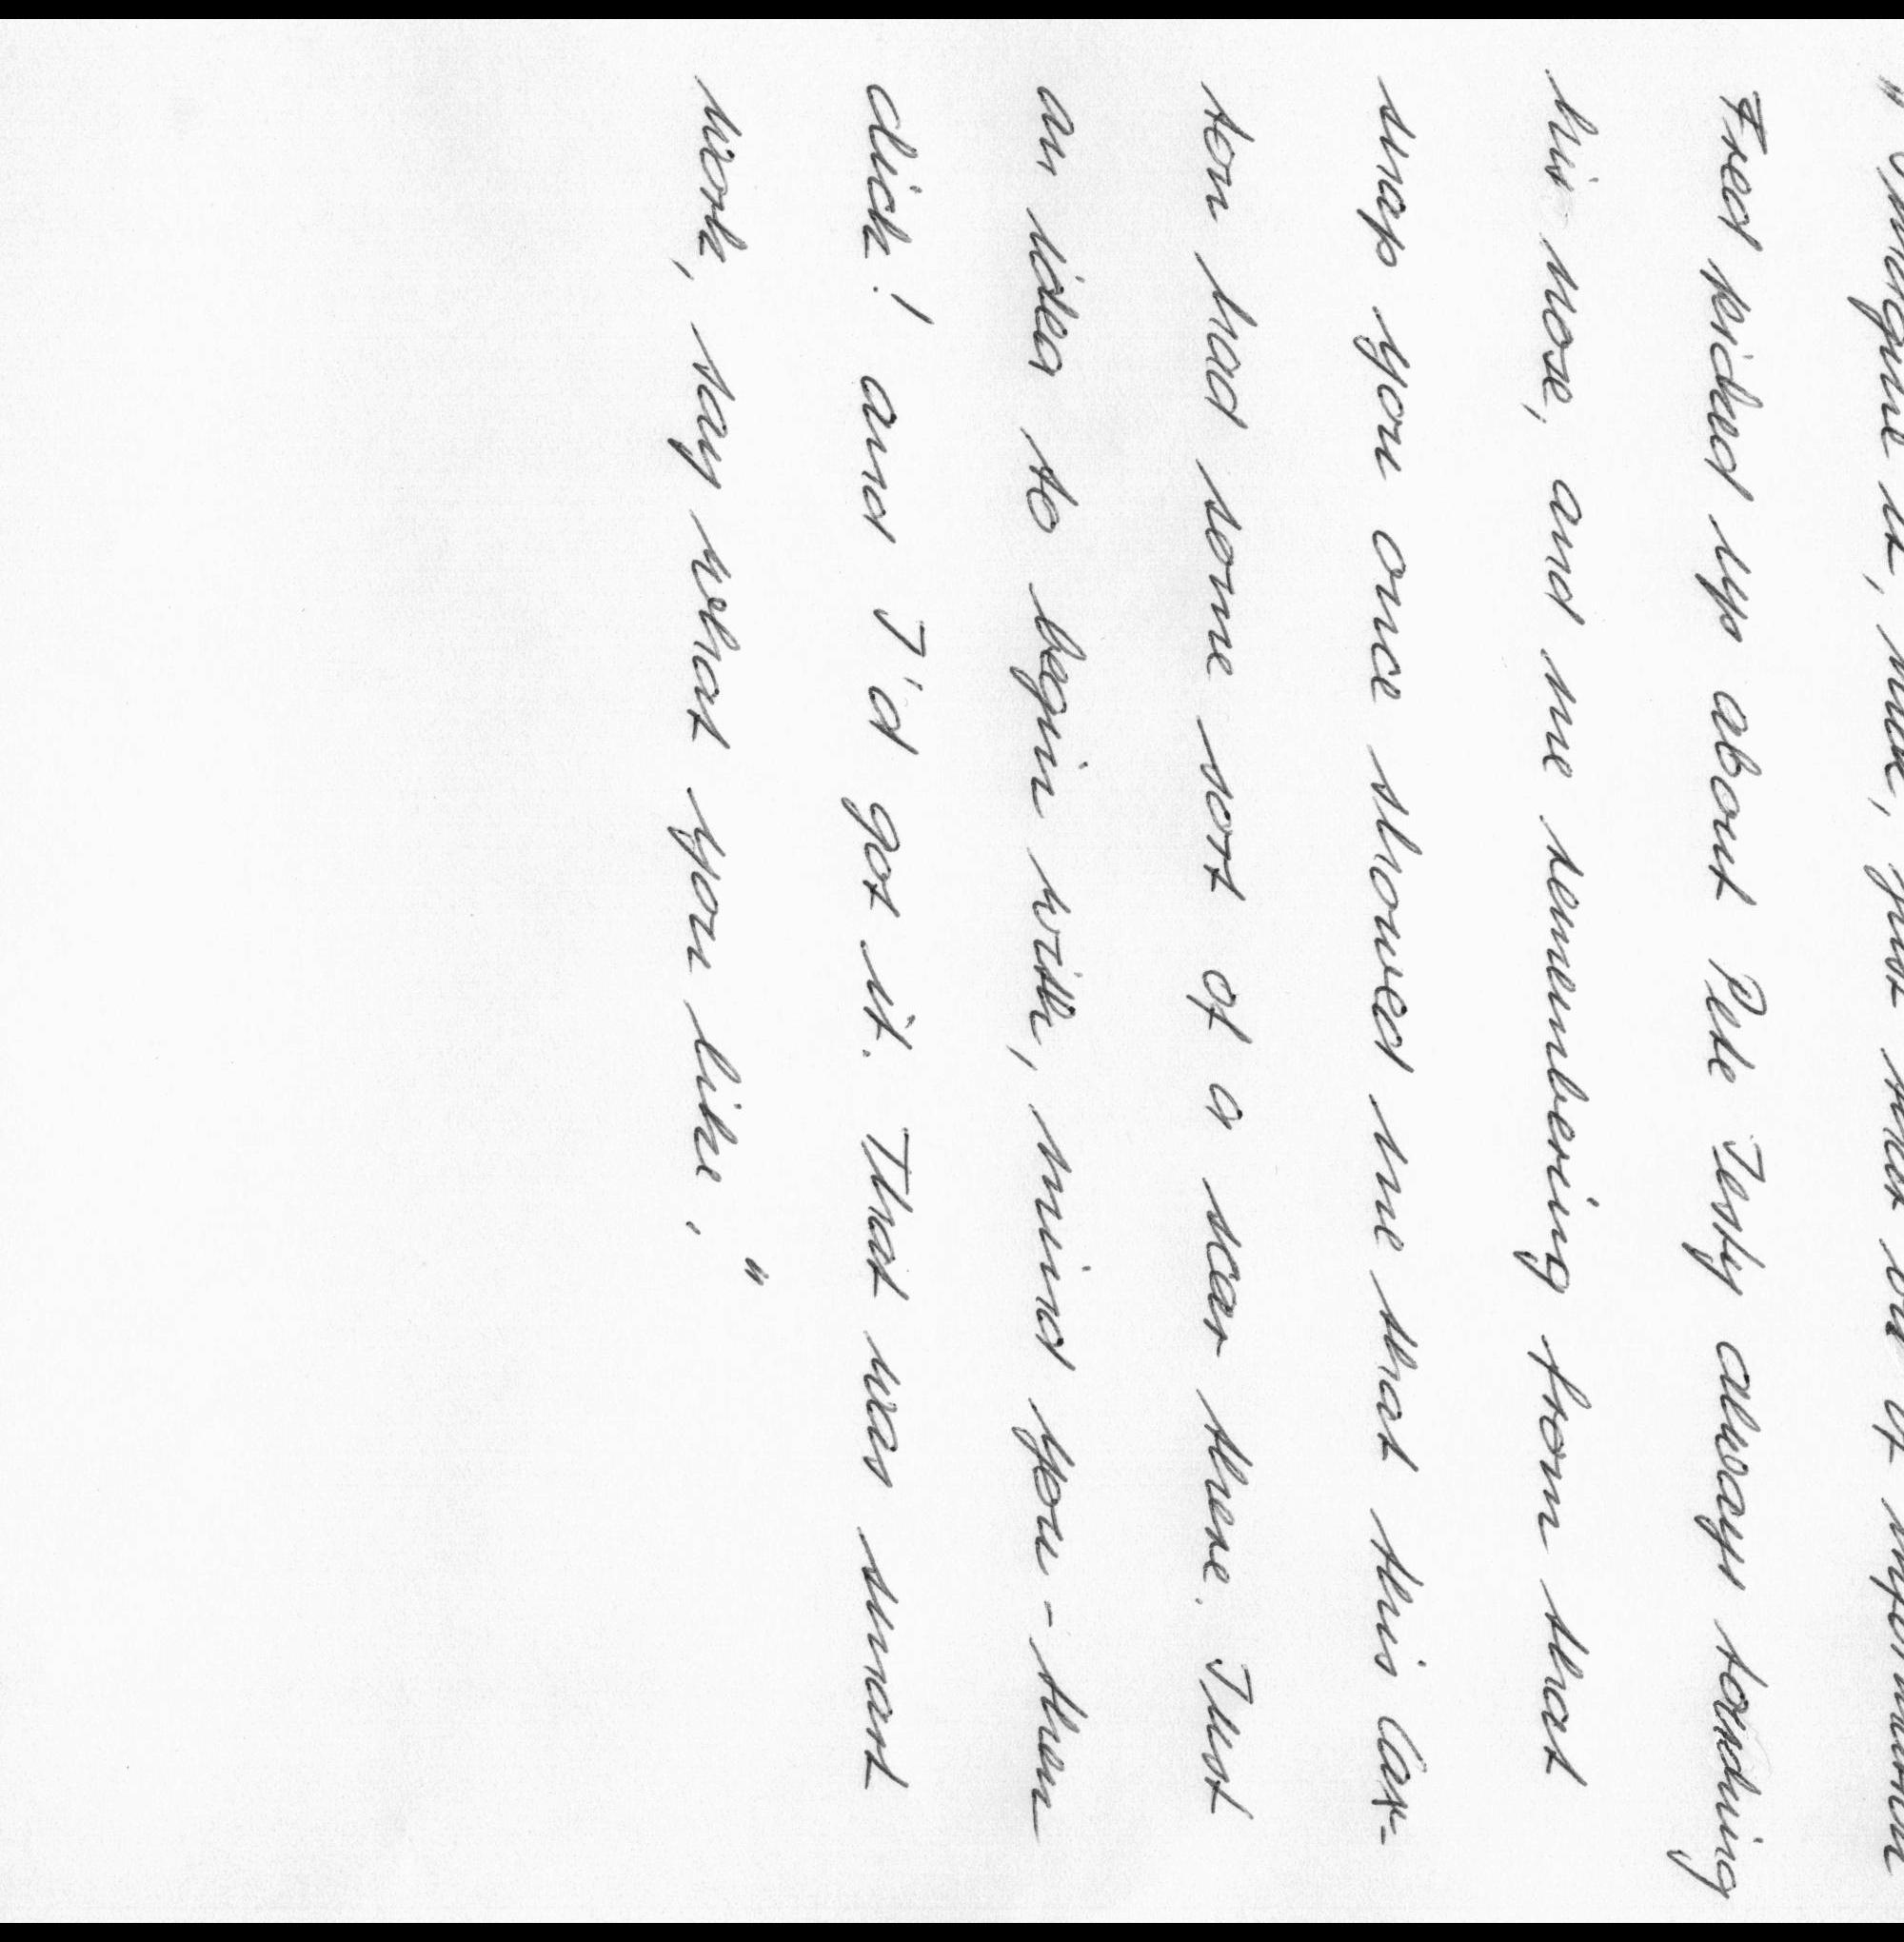 "Imagine it, mate, just that bit of information
Fred picked up about Pete Testy always touching
his nose, and me remembering from that
snap you once showed me that this Cas-
ton had some sort of a scar there. Just
an idea to begin with, mind you - then
click! and I'd got it. That was smart
work, say what you like."